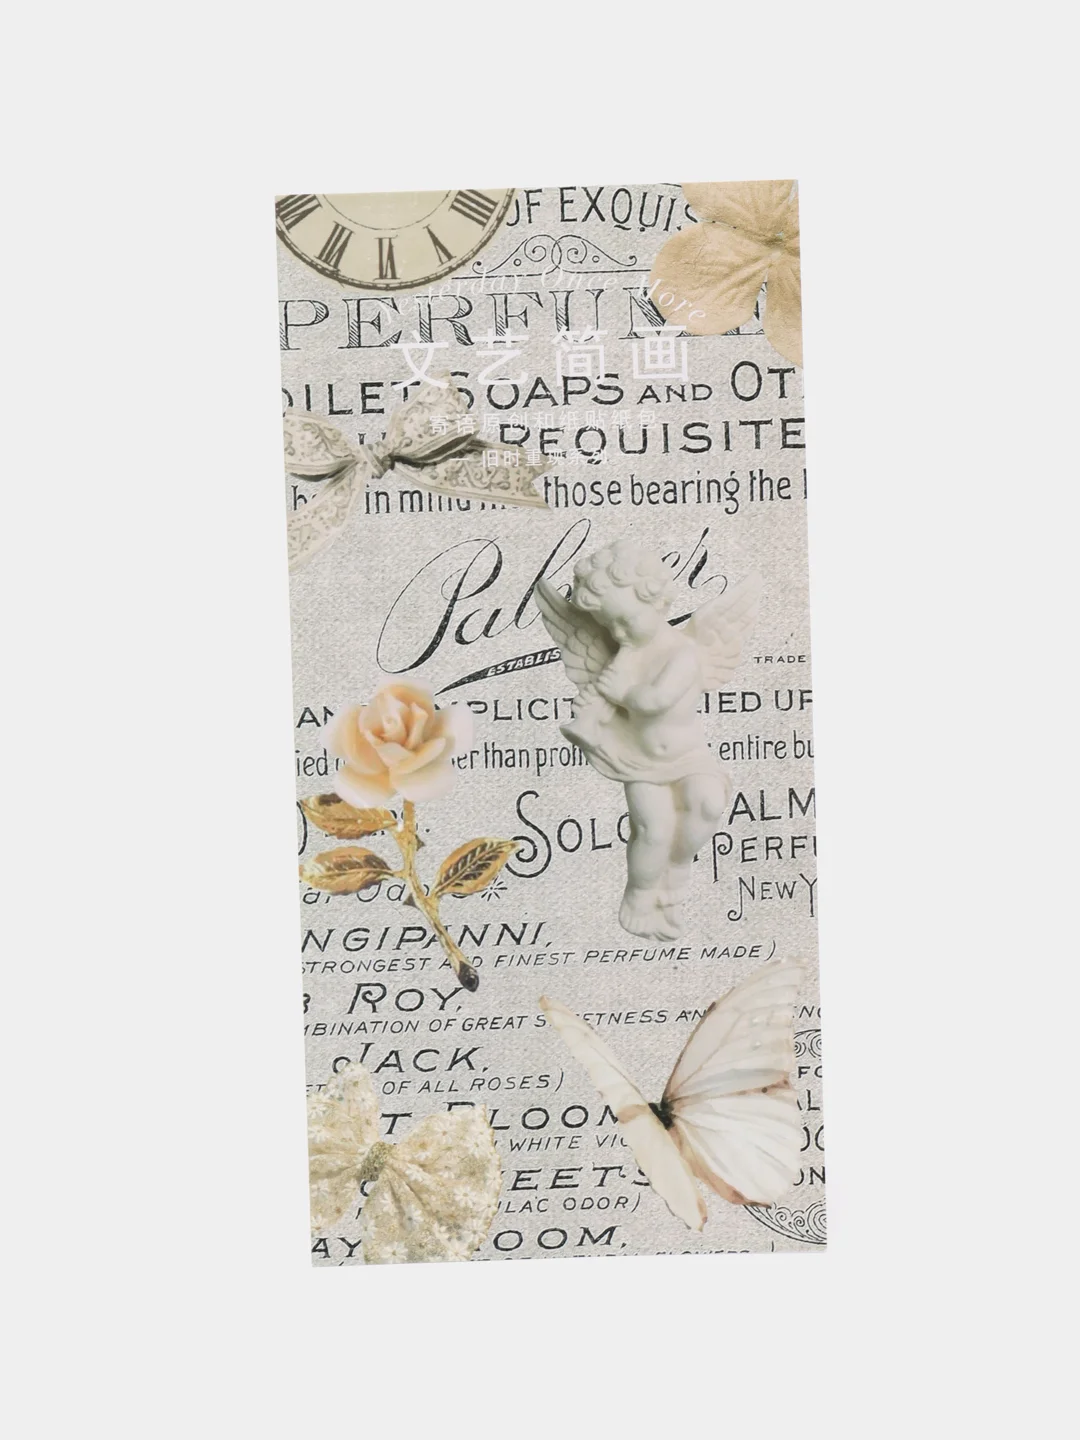 OF EXQUIS
Yesterday Once More
PERFUM
文艺简画
OILET SOAPS AND OT
寄语原创和纸贴纸包
REQUISITE
旧时重现系列
in mind those bearing the
Palmer
ESTABLIS
TRADE
AN PLICIT LIED UP
ied er than profi entire bu
SOLO ALM
PERFU
NEW Y
NGIPANNI,
STRONGEST AND FINEST PERFUME MADE)
ROY,
MBINATION OF GREAT SWEETNESS AN
JACK,
ET OF ALL ROSES)
T BLOOM
WHITE VIO
EETS
ILAC ODOR)
AY OOM,